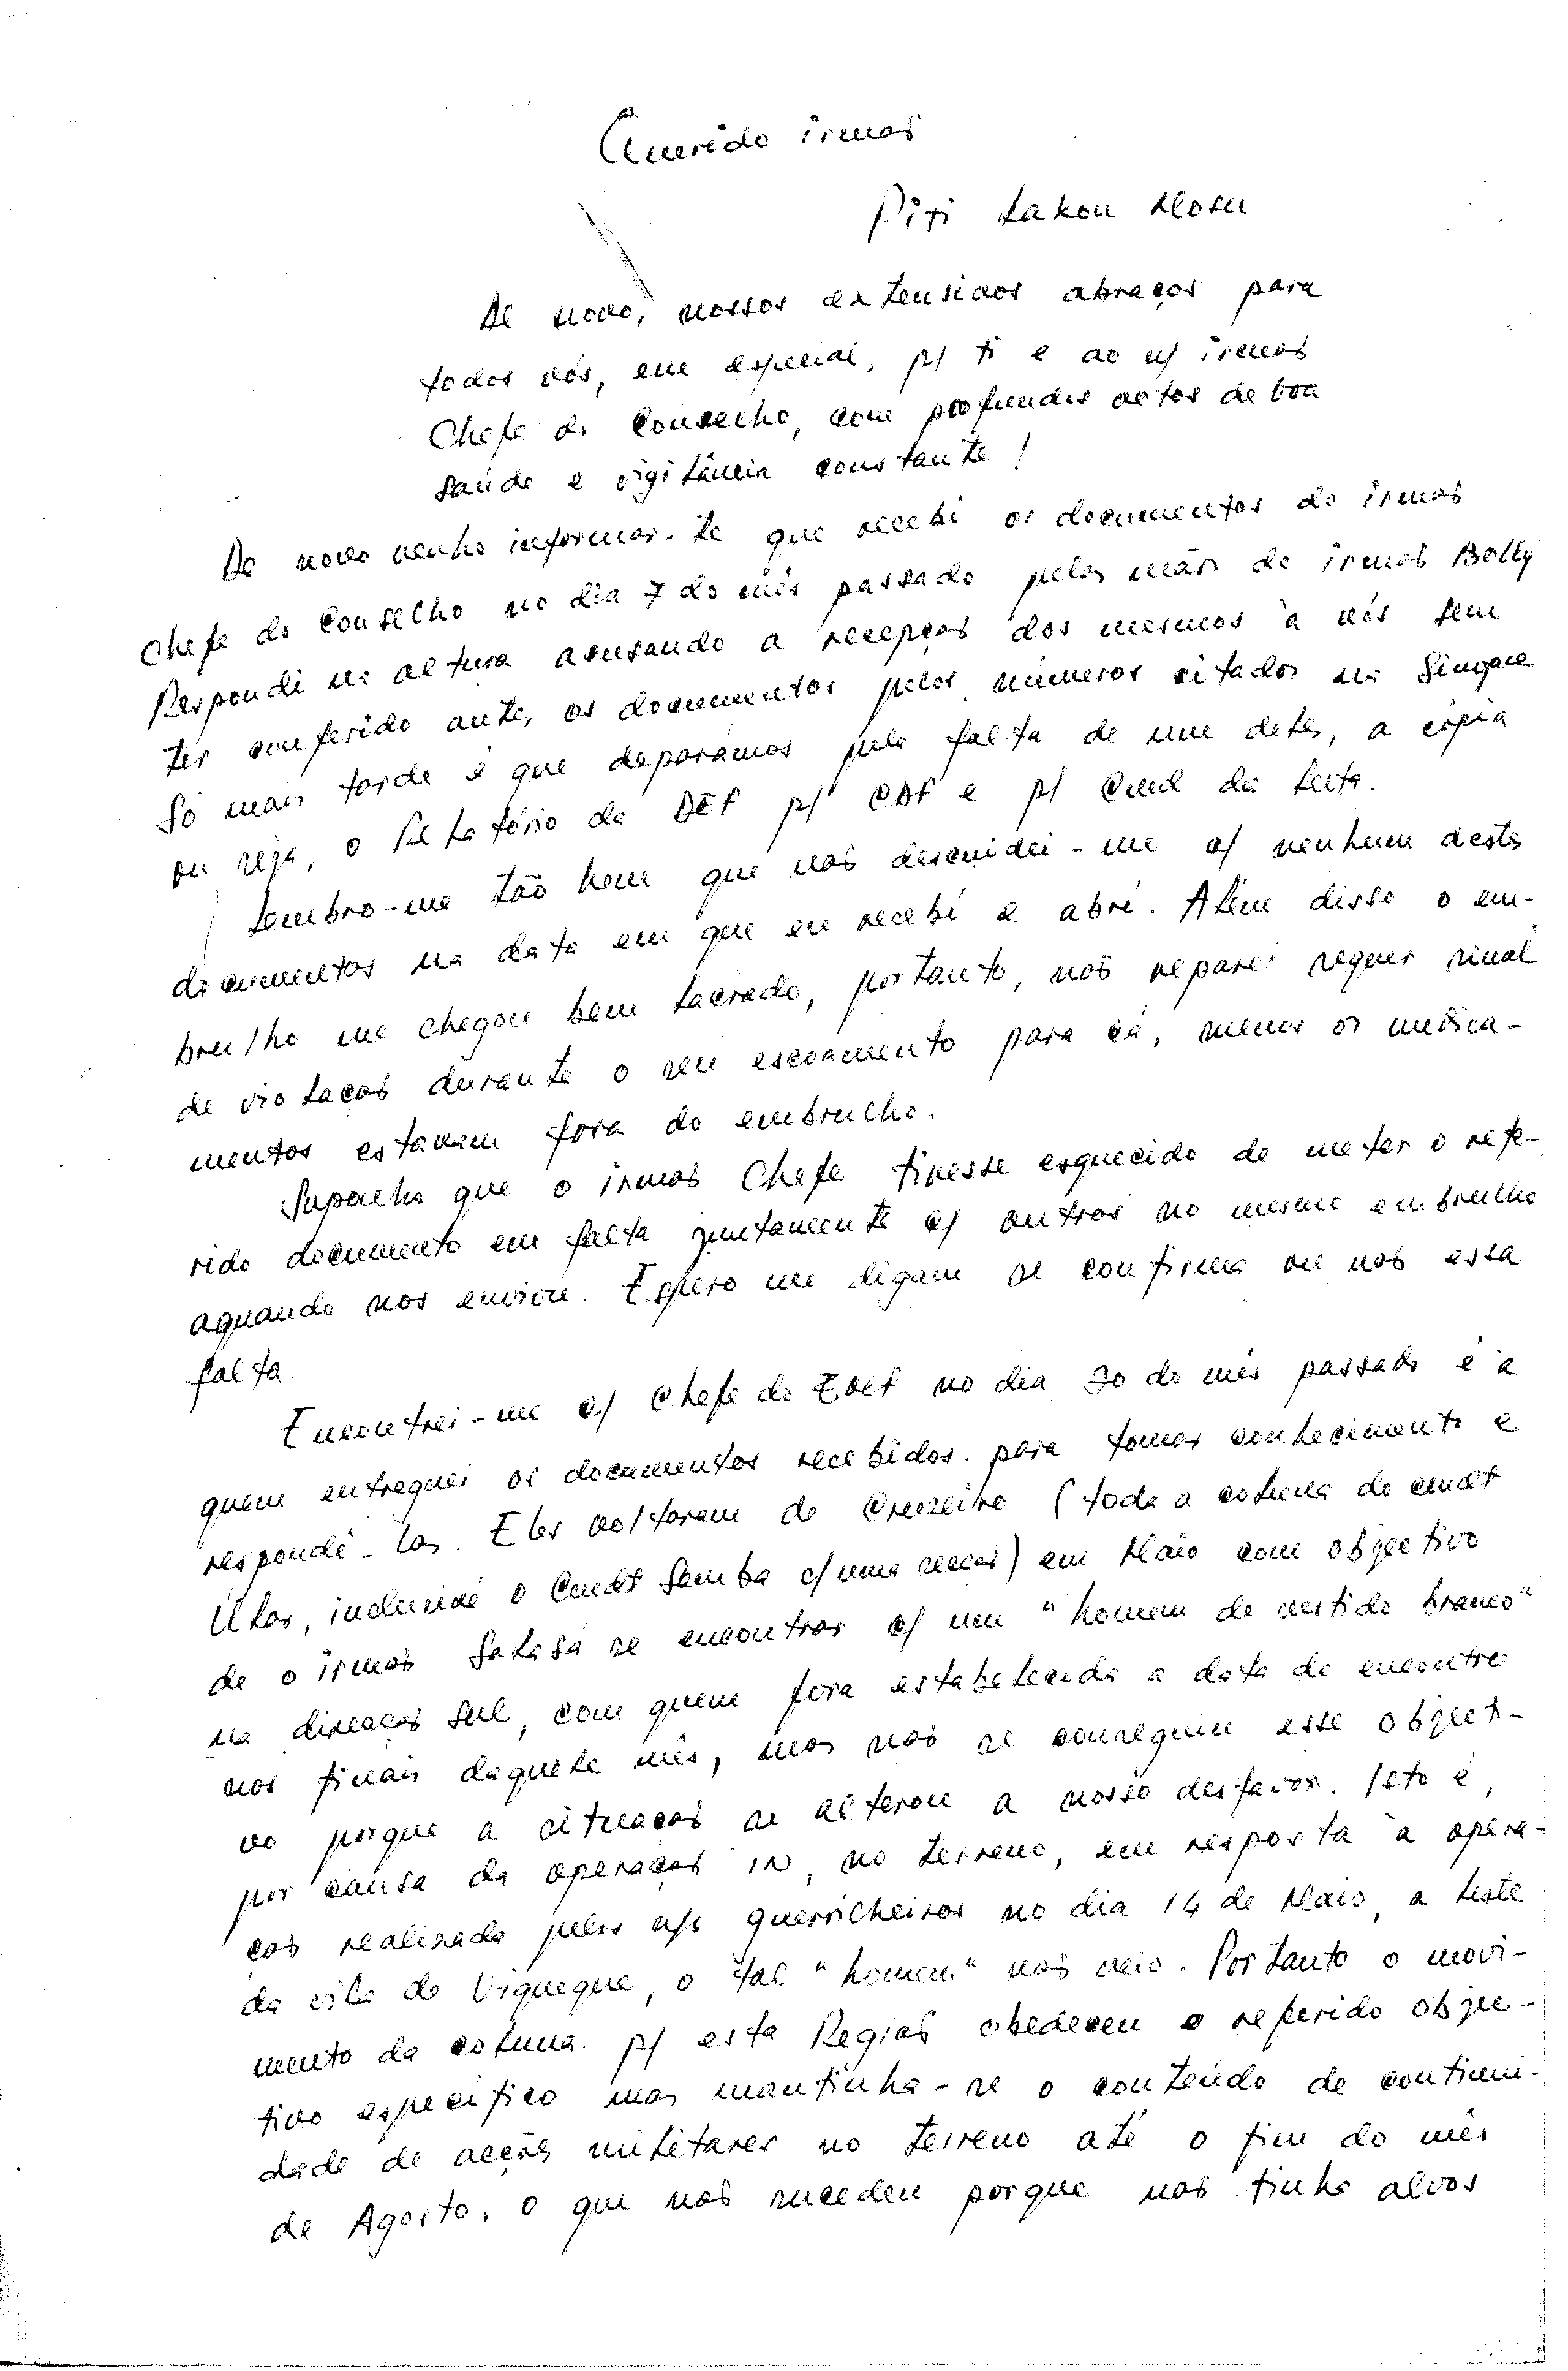 Querido irmão
Piti Lakon Mosu
De novo, nossos extensivos abraços para
todos vós, em especial, p/ ti e ao n/ irmão
Chefe do Conselho, com profundos votos de boa
saúde e vigilância constante!
De novo venho informar-te que recebi os documentos do irmão
Chefe do Conselho no dia 7 do mês passado pelas mãos do irmão Bolly
Respondi na altura acusando a recepção dos mesmos à vós sem
ter conferido antes os documentos pelos números citados na
Só mais tarde é que deparámos pela falta de um deles, a cópia
ou seja, o Relatório da DEF p/ CDF e p/ Cmd da Luta.
Lembro-me tão bem que não descuidei-me c/ nenhum destes
documentos na data em que eu recebi e abri. Além disso o em-
brulho me chegou bem lacrado, portanto, não reparei sequer sinal
de violação durante o seu escoamento para cá, menos os medica-
mentos estavam fora do embrulho.
Suponho que o irmão Chefe tivesse esquecido de meter o refe-
rido documento em falta juntamente c/ outros no mesmo embrulho
aquando nos enviou. Espero me digam se confirma ou não essa
falta
Encontrei-me c/ Chefe do no dia 30 do mês passado é a
quem entreguei os documentos recebidos para tomar conhecimento e
respondê-los. Eles voltaram do Cruzeiro (toda a coluna do cmdt
Ular, inclusivé o Cmdt Samba c/ uma secção) em Maio com objectivo
de o irmão Salasá se encontrar c/ um "homem de vestido branco"
na direcção Sul, com quem fora estabelecida a data do encontro
nos finais daquele mês, mas não se conseguiu esse object-
vo porque a situação se alterou a nosso desfavor. Isto é,
por causa da operação IN, no terreno, em resposta à opera-
ção realizada pelos n/s guerrilheiros no dia 14 de Maio, a leste
da vila de Viqueque, o tal "homem" não veio. Portanto o movi-
mento da coluna p/ esta Região obedeceu o referido objec-
tivo específico mas mantinha-se o conteúdo de continui-
dade de acções militares no terreno até o fim do mês
de Agosto, o que não sucedeu porque não tinha alvos